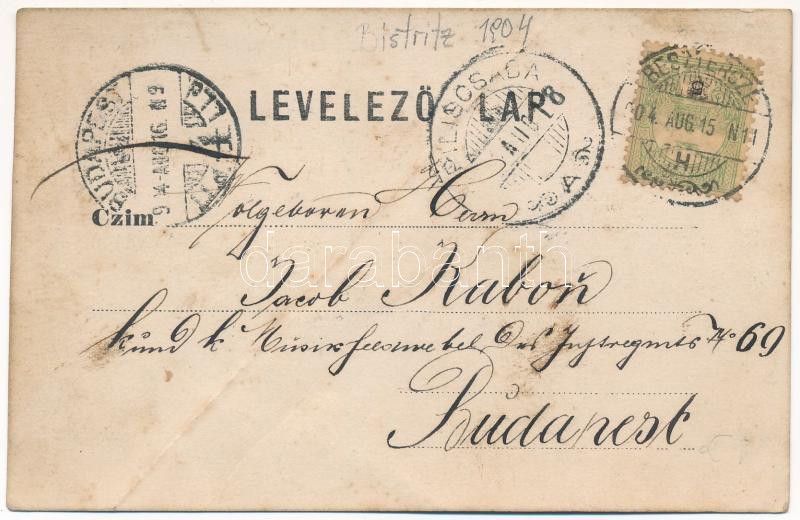 Bistritz 1904
LEVELEZŐ LAP
BUDAPEST
904 AUG. 16. N 9
PILISCSABA
BESZTERCZE
904 AUG. 15 N 11
Czim Herrn
Jacob Kaboň
k und k Musikfeldwebel des Inftregmts No 69
Budapest
darabanth